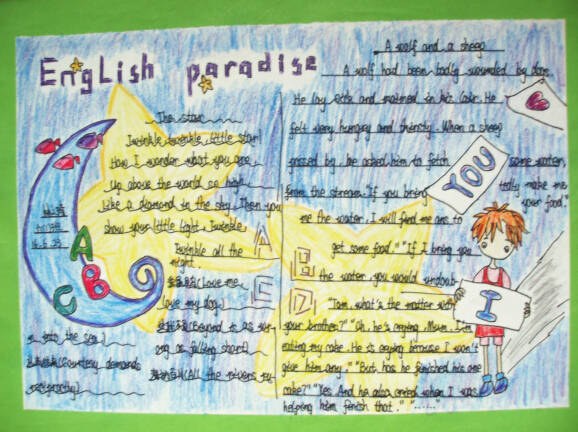 English paradise
The star
Twinkle twinkle little star
How I wonder what you are
Up above the world so high
Like a diamond in the sky Then you
show your little light, Twinkle
Twinkle all the
night
(Love me,
love my dog)
(Beyond is as wr-
ong as falling short)
(All the rivers ru-
n into the sea)
(Courtesy demands
reciprocity)
A
B
C
A
B
C
D
A wolf and a sheep
A wolf had been badly wounded by dogs.
He lay sick and maimed in his lair. He
felt very hungry and thirsty. When a sheep
passed by, he asked him to fetch some water
from the stream. "If you bring
me the water, I will find means to
get some food." "If I bring you
the water, you would undoub-
tedly make me
your food."
YOU
I
"Tom, what's the matter with
your brother?" "Oh, he's crying, Mum. I'm
eating my cake. He is crying because I won't
give him any." "But has he finished his own
cake?" "Yes. And he also cried when I was
helping him finish that." "......"